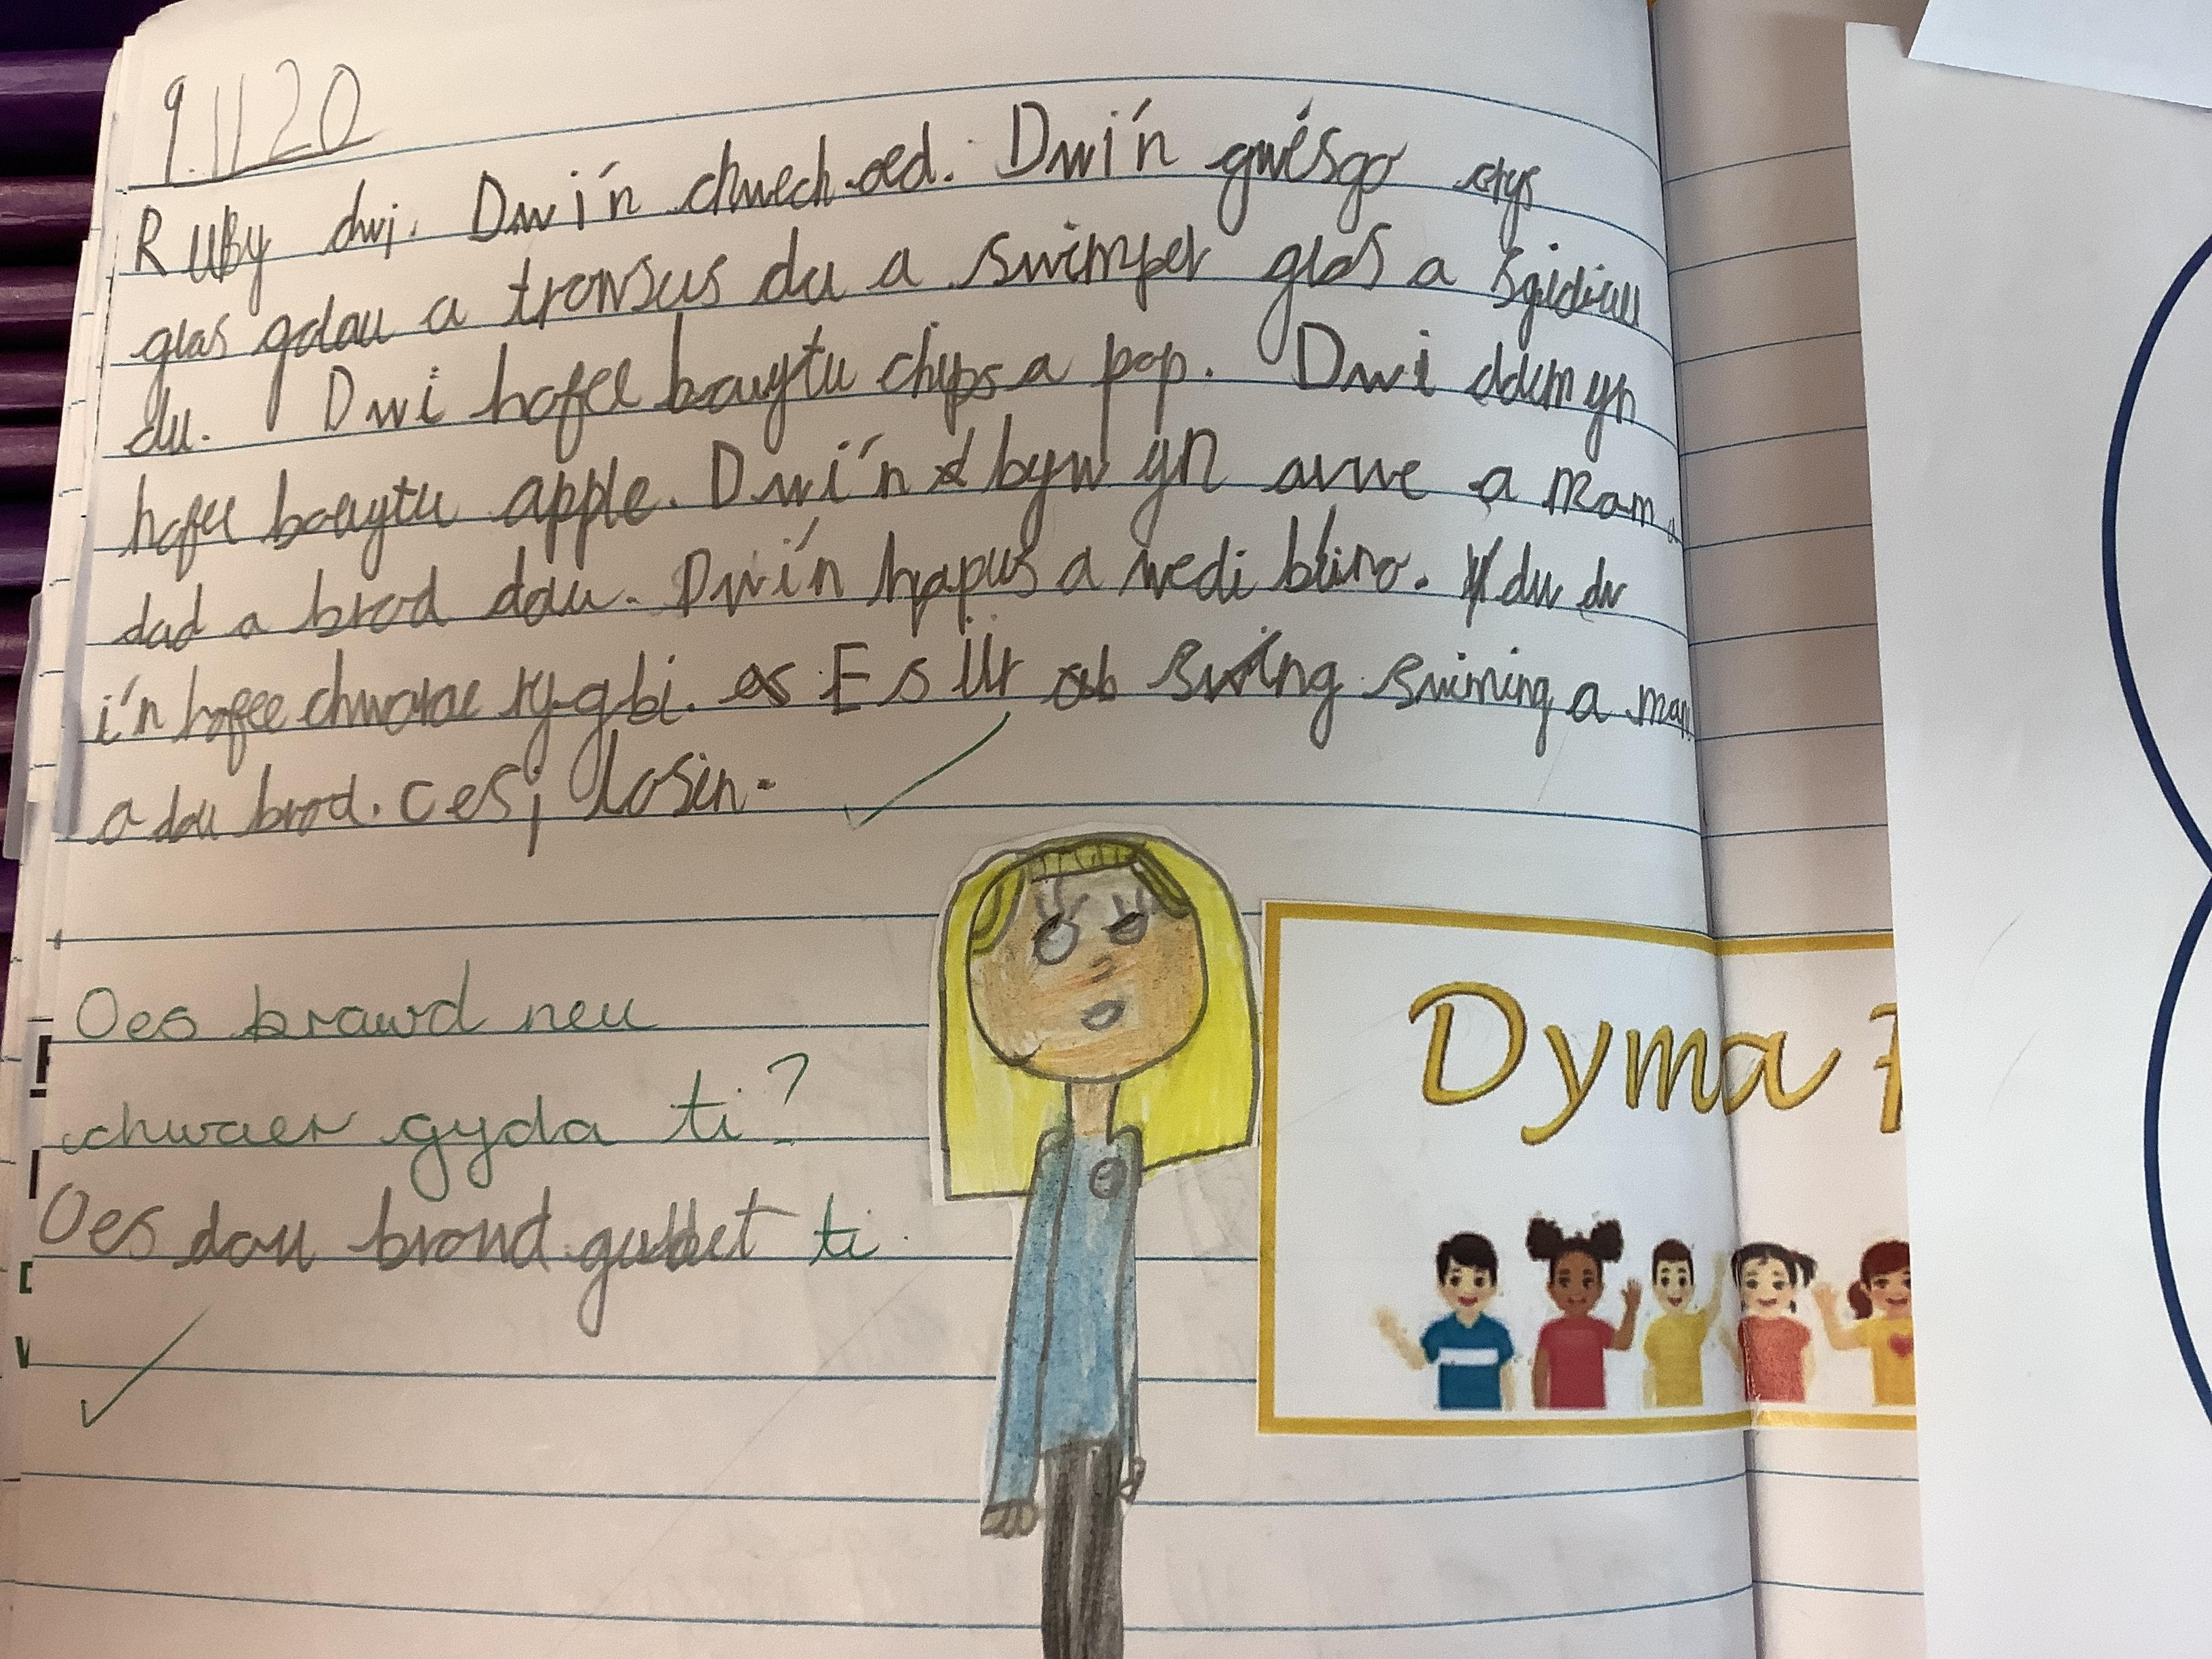 9.11.20
Ruby dwi. Dwi'n chwech oed. Dwi'n gwesgo crys
glas golau a trowsus du a swimper glas a sgidiau
du. Dwi hofee bauytu chips a pop. Dwi ddim yn
hofee bauytu apple. Dwi'n byw yn a mam
dad a brod dau. Dwi'n hapus a wedi blino. dw dw
i'n hofee chwarae rygbi. Es i swiming a mam
a dau brod. Ces i losin.
Oes brawd neu
chwaer gyda ti?
Oes dau browd ti.
Dyma